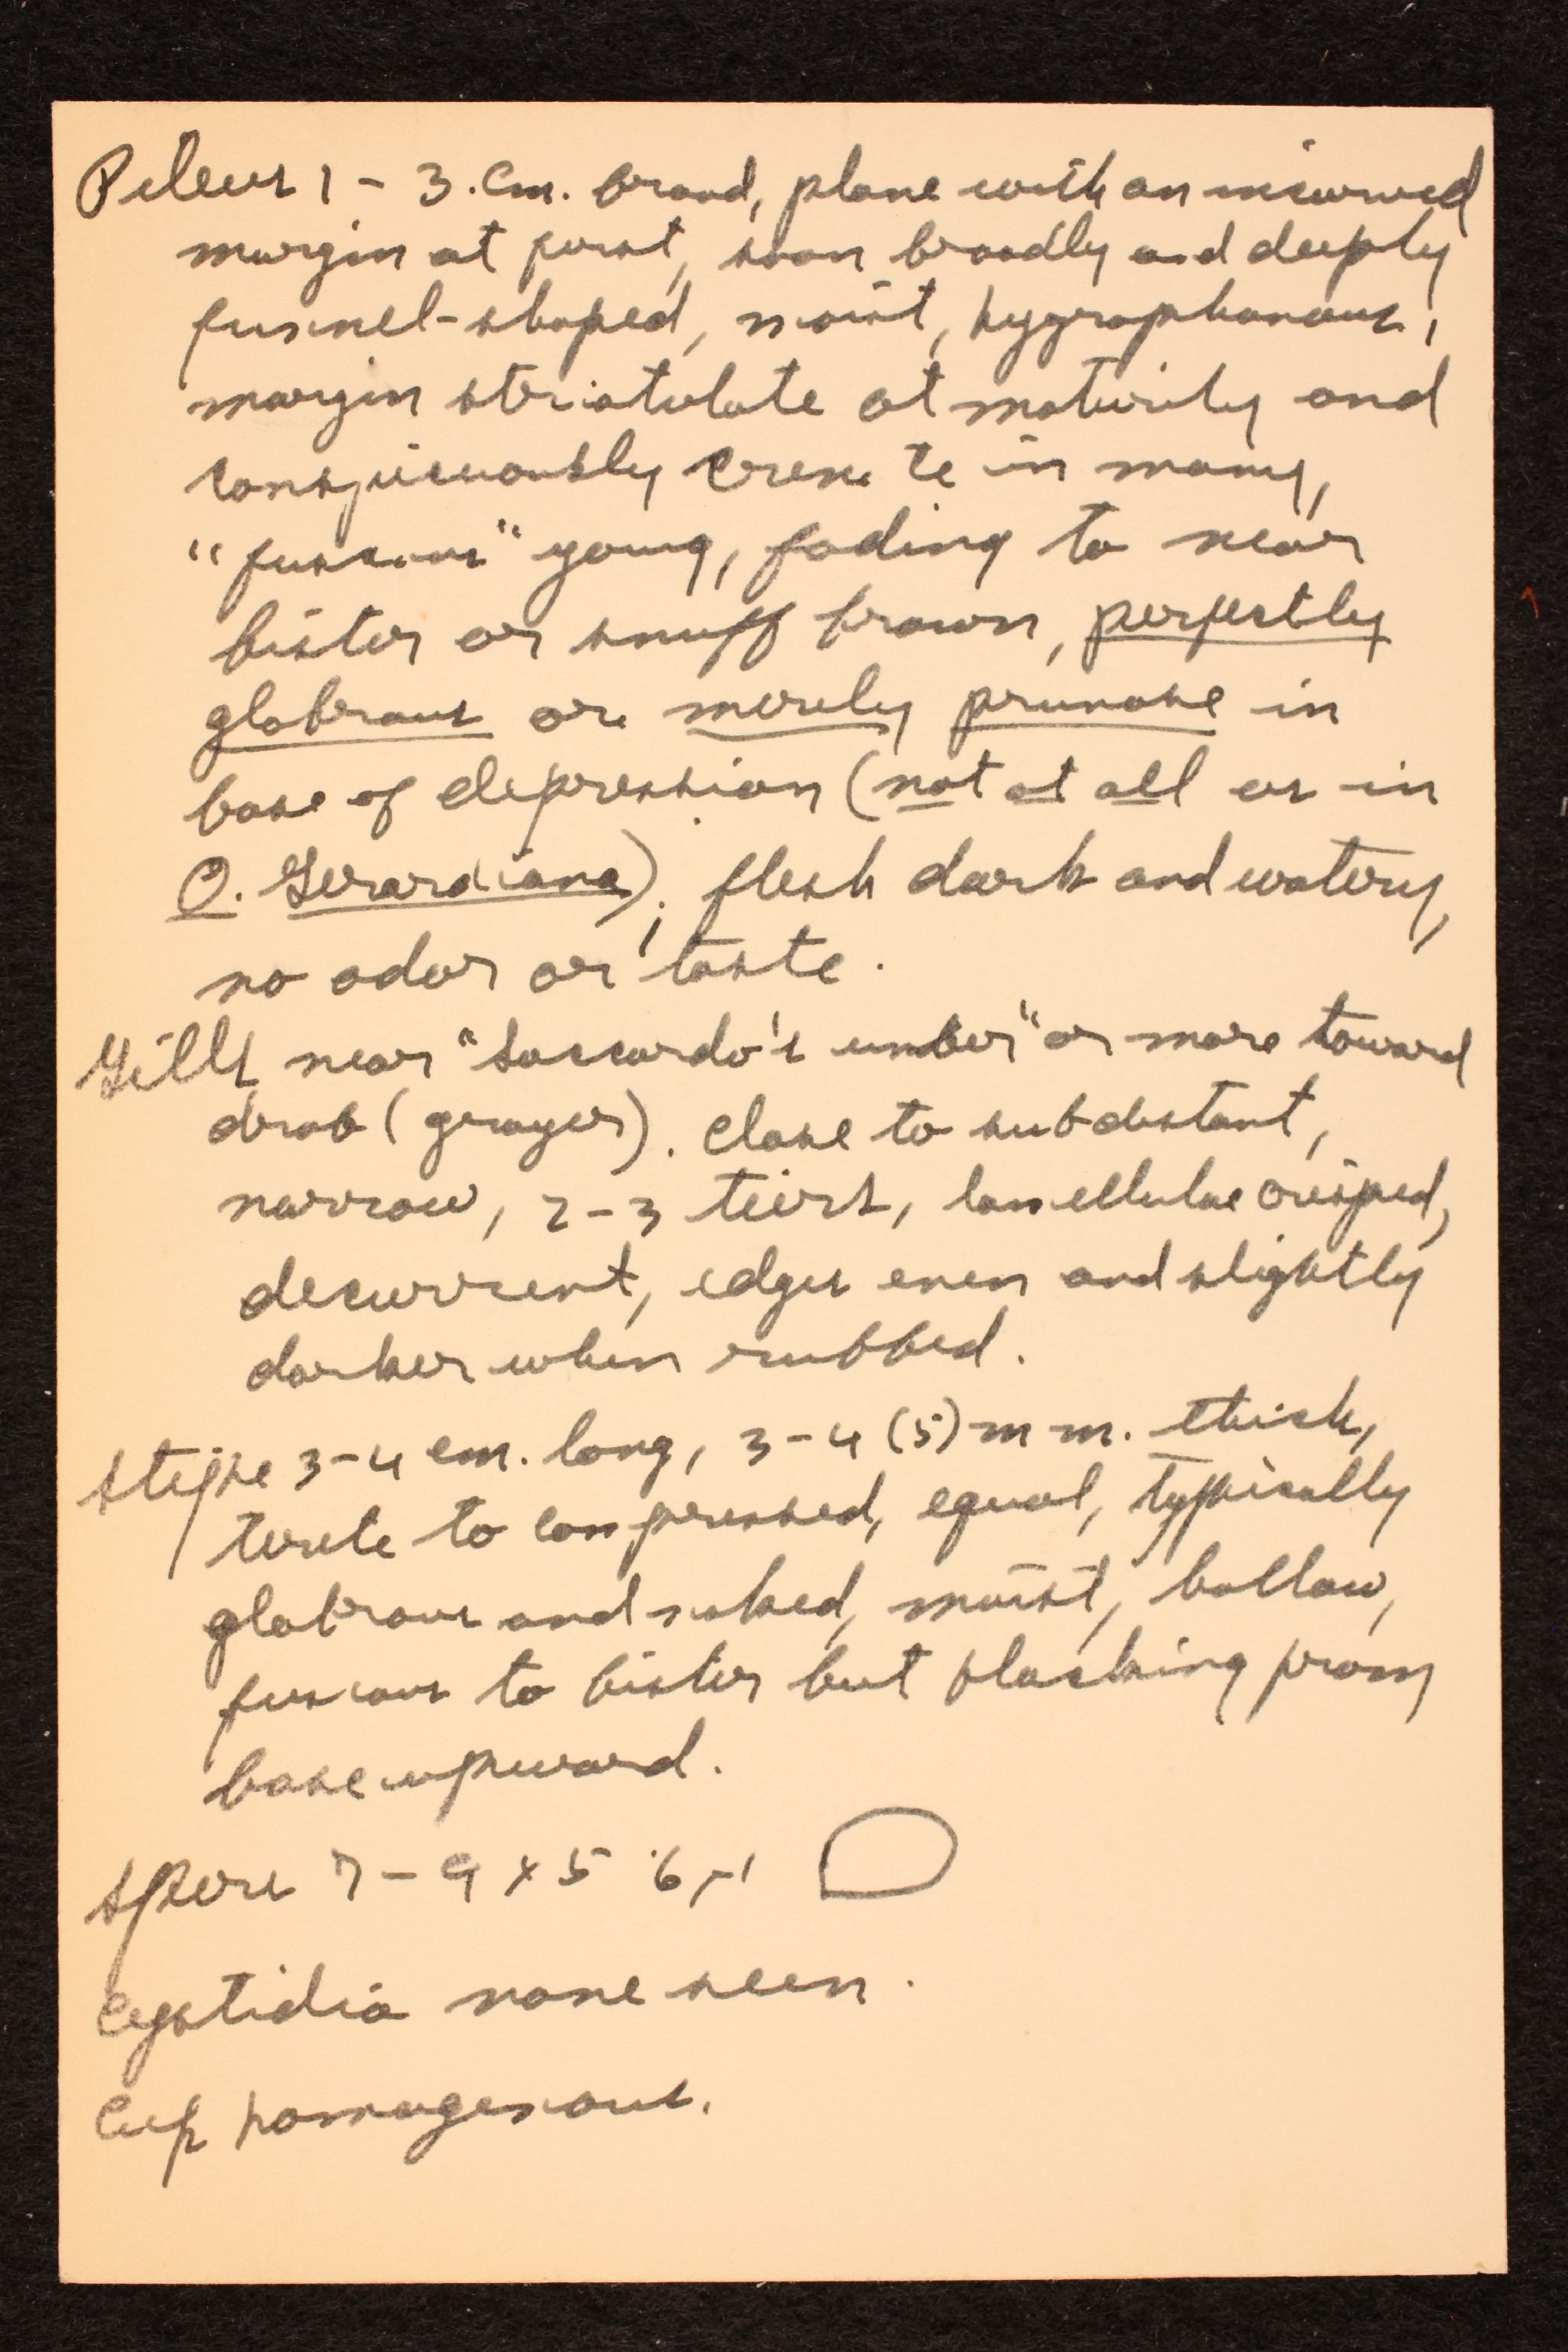 Pileus 1 - 3.cm. broad, plane with an incurved
margin at first, soon broadly and deeply
funnel-shaped, moist, hygrophanous,
margin striatulate at maturity and
conspicuously crenate in many,
"fuscous" young, fading to near
bister or snuff brown, perfectly
glabrous or merely prunose in
base of depression (not at all as in
O. Gerardiana); flesh dark and watery,
no odor or taste.
Gills near "Saccardo's umber" or more toward
drab (grayer). close to subdistant,
narrow, 2-3 teirs, lamellulae crisped,
decurrent, edges even and slightly
darker when rubbed.
Stipe 3-4 cm. long, 3-4 (5) mm. thick,
terete to compressed, equal, typically
glabrous and naked, moist, hollow,
fuscous to bister but blacking from
base upward.
Spores 7-9 x 5 6 µ
Cystidia none seen.
Cup homogenous.